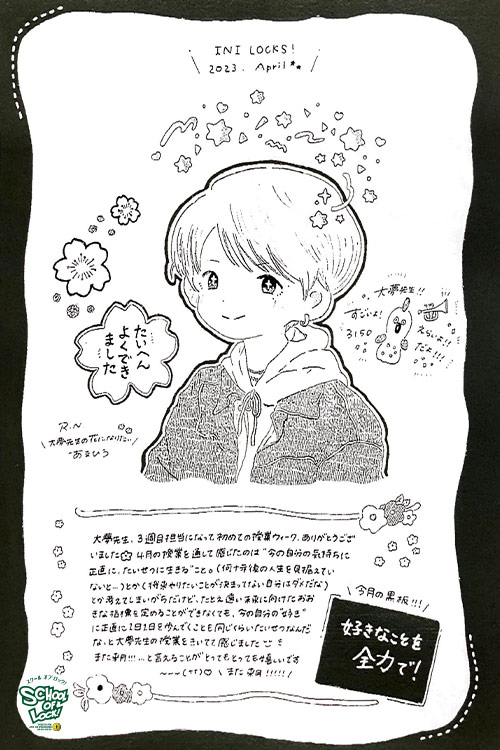 INI LOCKS!
2023. April
大夢先生!!
すごいよ!
3150
えらいよ!
だよ!!!
たいへん
よくでき
ました
R.N
\大夢先生の花になりたい/
あるひろ
大夢先生、3週目担当になって初めての授業ウィーク、ありがとうござ
いました 4月の授業を通して感じたのは“今の自分の気持ちに
正直に、たいせつに生きる”こと。(何十年後の人生を見据えてい
ないと…)とか(将来やりたいことが決まってない自分はダメだな)
とか考えてしまいがちだけど、たとえ遠い未来に向けたおお
きな指標を定めることができなくても、今の自分の“好き”
に正直に1日1日を歩んでくことも同じくらいたいせつなんだ
な、と大夢先生の授業をきいて感じました
また来月!!!…と言えることがとってもとっても嬉しいです
また来月!!!!!
\今月の黒板!!!/
好きなことを
全力で!
スクール オブ ロック!
SCHOOL
OF
LOCK!